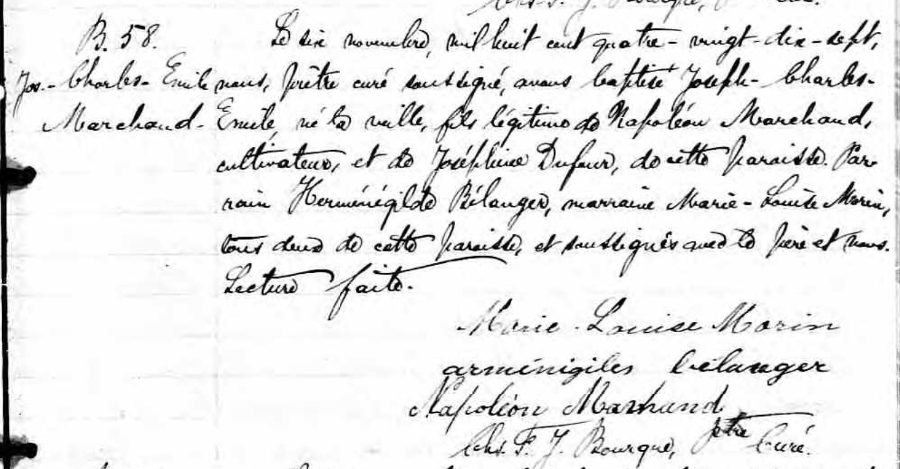 Chs. F. J. Bourque, curé.
B. 58.
Le six novembre, mil huit cent quatre-vingt-dix-sept,
Jos.-Charles-Emile
nous, prêtre curé soussigné, avons baptisé Joseph-Charles-
Marchand.
Emile, né la veille, fils légitime de Napoléon Marchand,
cultivateur, et de Joséphine Dufour, de cette paroisse. Par-
rain Herménégilde Bélanger, marraine Marie-Louise Morin,
tous deux de cette paroisse, et soussignés avec le père et nous.
Lecture faite.
Marie-Louise Morin
arménigiles bélanger
Napoléon Marhand
Chs. F. J. Bourque, ptre Curé.